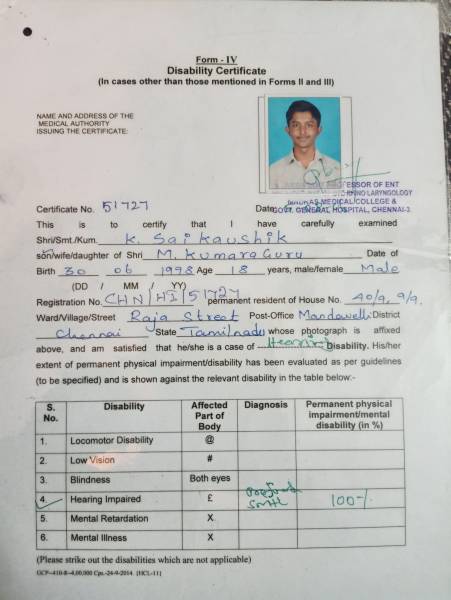 Form - IV
Disability Certificate
(In cases other than those mentioned in Forms II and III)
NAME AND ADDRESS OF THE
MEDICAL AUTHORITY
ISSUING THE CERTIFICATE:
PROFESSOR OF ENT
RHINO LARYNGOLOGY
MEDICAL COLLEGE &
GOVT. GENERAL HOSPITAL, CHENNAI-3.
Certificate No. 51727 Date:
This is to certify that I have carefully examined
Shri/Smt./Kum. K. Sai Kaushik
son/wife/daughter of Shri M. Kumara Guru Date of
Birth 30 06 1998 Age 18 years, male/female Male
(DD / MM / YY)
Registration No. CHN/HI/51727 permanent resident of House No. 40/9, 9/9.
Ward/Village/Street Raja Street Post-Office Mandavelli District
Chennai State Tamilnadu whose photograph is affixed
above, and am satisfied that he/she is a case of Hearing Disability. His/her
extent of permanent physical impairment/disability has been evaluated as per guidelines
(to be specified) and is shown against the relevant disability in the table below:-
S. No. Disability Affected Part of Body Diagnosis Permanent physical impairment/mental disability (in %)
1. Locomotor Disability @
2. Low Vision #
3. Blindness Both eyes
4. Hearing Impaired £ 100%
5. Mental Retardation X
6. Mental Illness X
(Please strike out the disabilities which are not applicable)
GCP--410-8--4,00,000 Cps.-24-9-2014. [HCL-11]